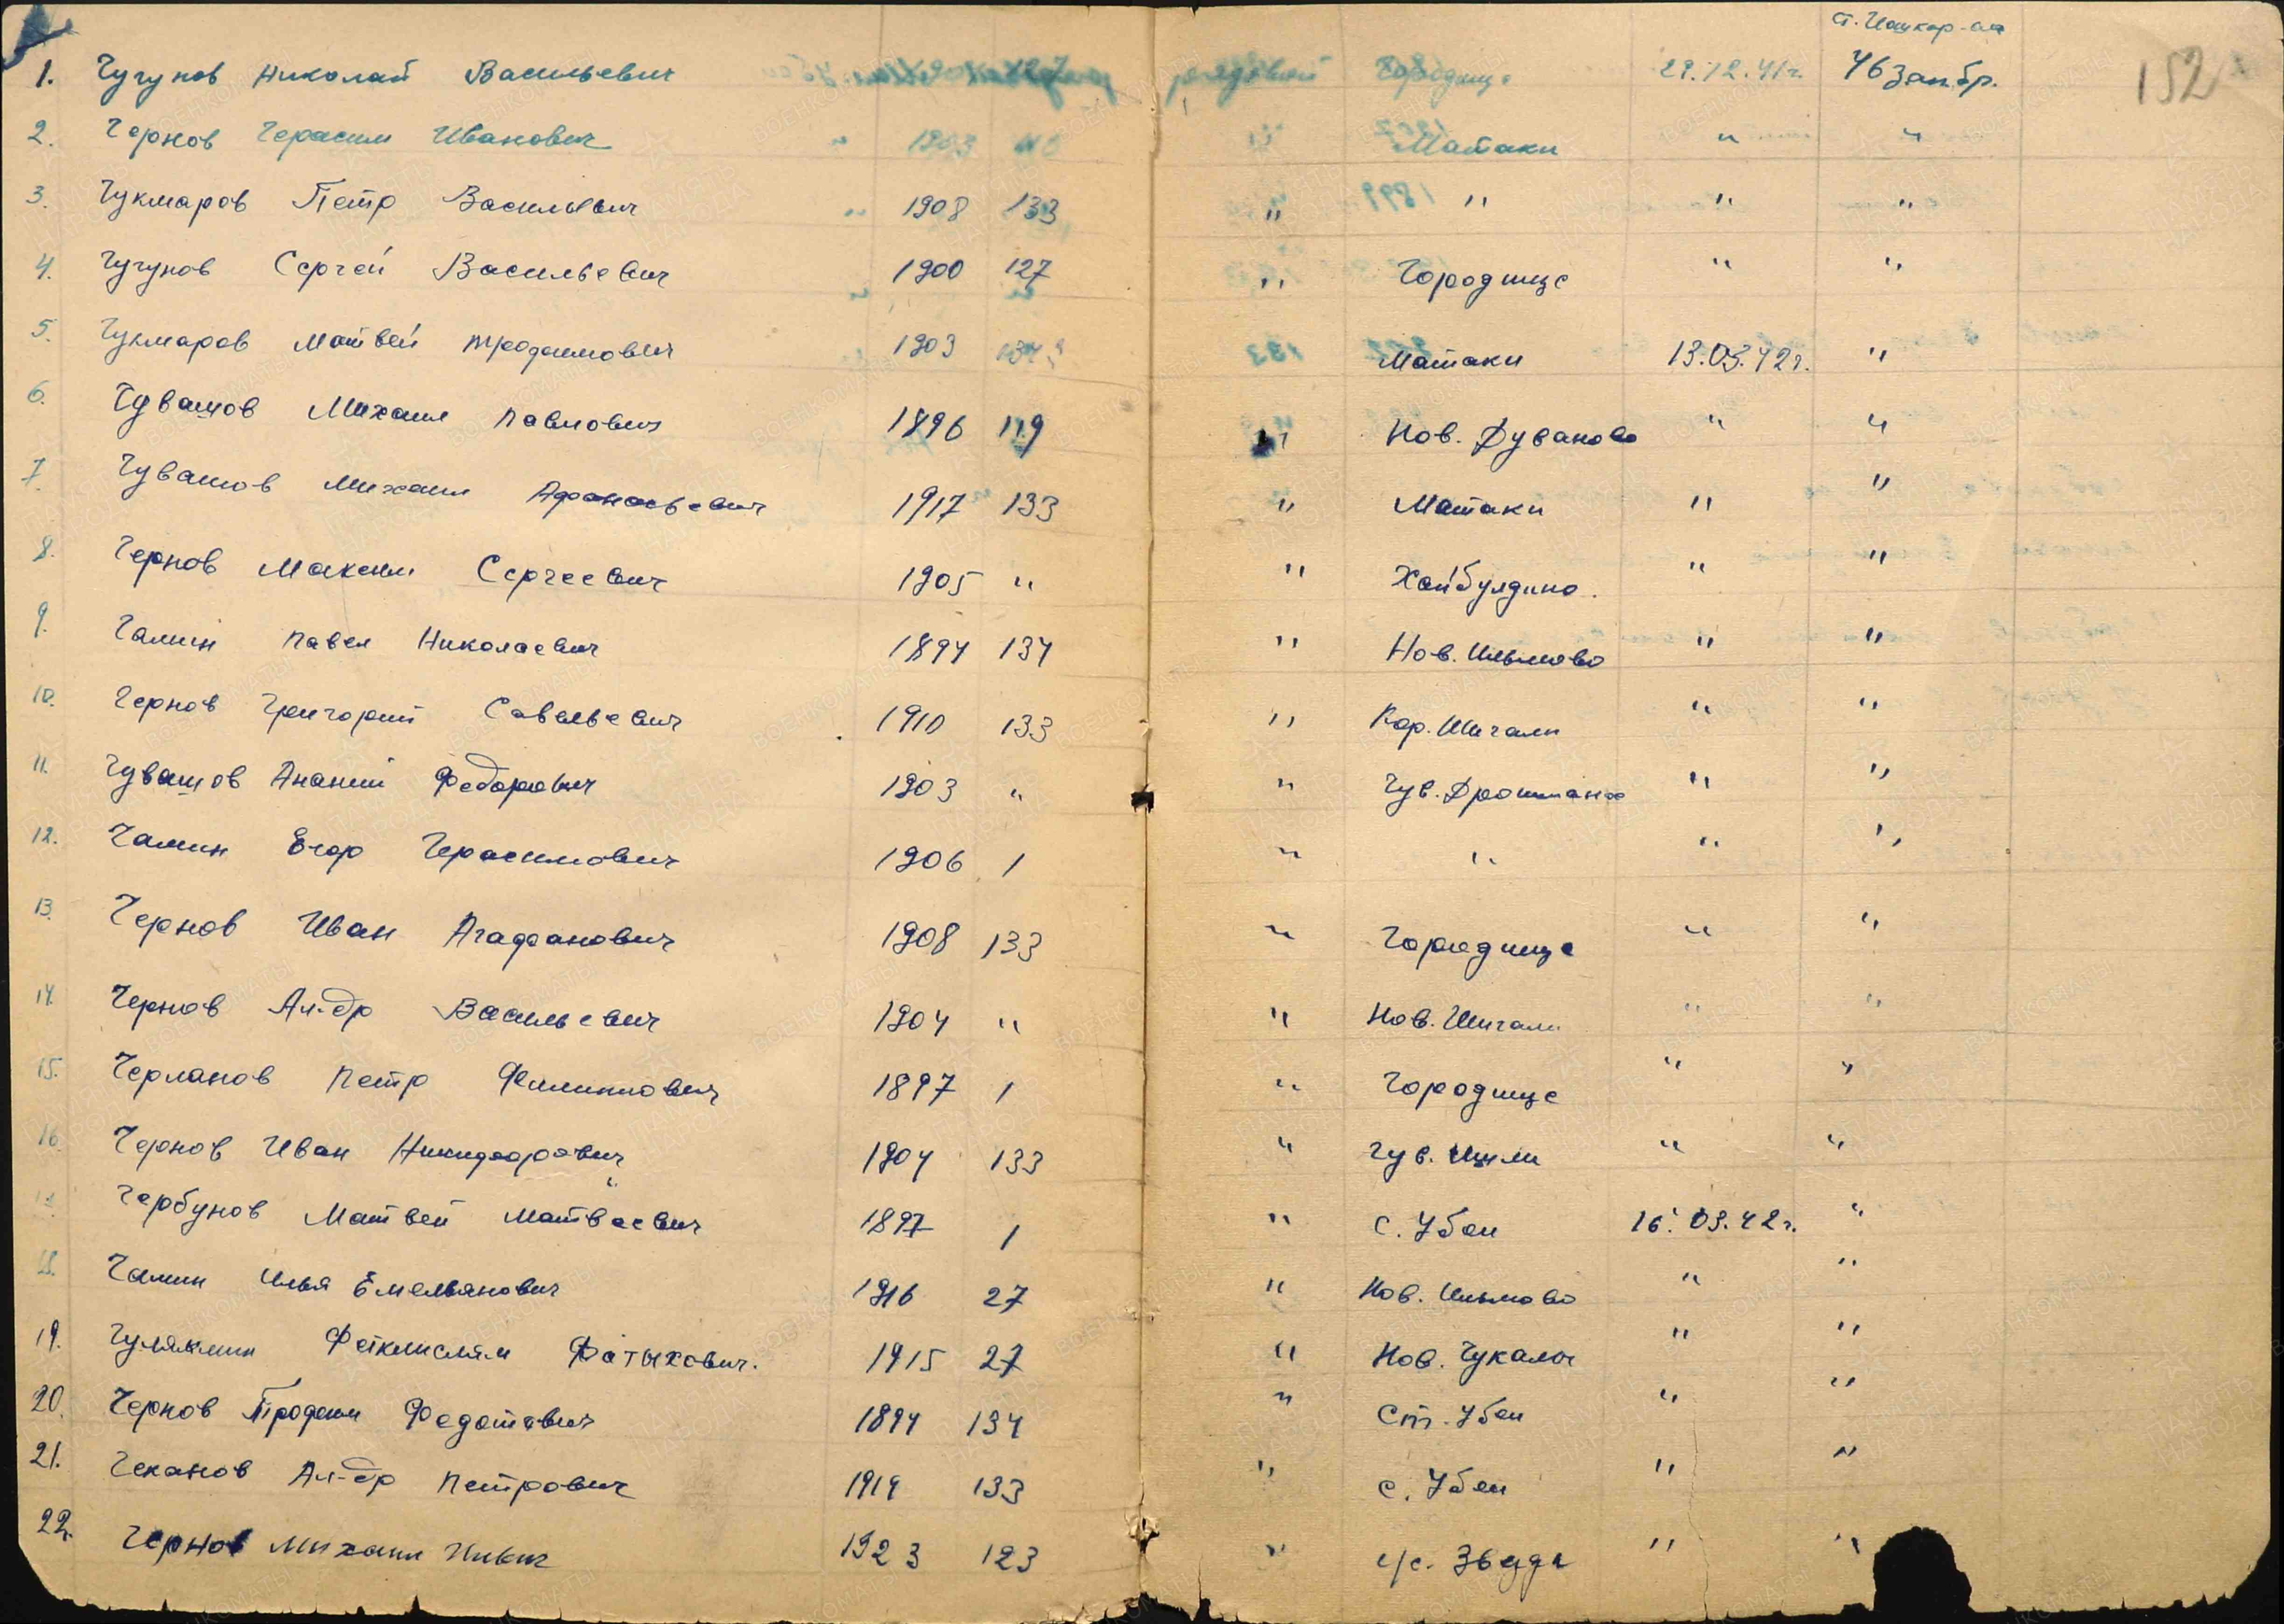 ст. Йошкар-ала
152
1. Чугунов Николай Васильевич рядовой Городище 29.12.41г. 46 зап.бр.
2. Чернов Герасим Иванович " 1903 " Матаки " "
3. Чукмаров Петр Васильевич " 1908 133 " " " "
4. Чугунов Сергей Васильевич 1900 127 " Городище " "
5. Чукмаров Матвей Трофимович 1903 134 Матаки 13.03.42г. "
6. Чувашов Михаил Павлович 1896 119 " Нов. Дуваново " "
7. Чувашов Михаил Афонасьевич 1917 133 " Матаки " "
8. Чернов Максим Сергеевич 1905 " " Хайбулдино. " "
9. Чамин Павел Николаевич 1894 134 " Нов. Ильмово " "
10. Чернов Григорий Савельевич 1910 133 " Кор. Шигали " "
11. Чувашов Ананий Федорович 1903 " " Чув. Дрожжаное " "
12. Чамин Егор Герасимович 1906 1 " " " "
13. Чернов Иван Агафанович 1908 133 " Городище " "
14. Чернов Ал-др Васильевич 1904 " " Нов. Шигали " "
15. Черланов Петр Филиппович 1897 1 " Городище " "
16 Чернов Иван Никифорович 1904 133 " Чув. " "
Чербунов Матвей Матвеевич 1897 1 " с. Убеи 16.03.42г. "
18. Чамин Илья Емельянович 1916 27 " Нов. Ильмово " "
19. Чулякмин Фаткислям Фатыхович. 1915 27 " Нов. Чукалы " "
20. Чернов Трофим Федотович 1894 134 " Ст. Убеи " "
21. Чеканов Ал-др Петрович 1919 133 " с. Убеи " "
22. Чернов Михаил 1923 123 " с/с. Звезда " "